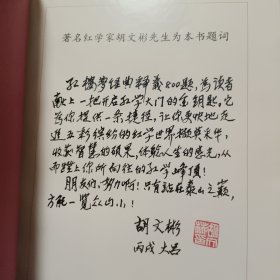 著名红学家胡文彬先生为本书题词
红楼梦经典释义800题，为读者
献上一把开启红学大门的金钥匙，它
为你提供一条捷径，让你更快地走
进五彩缤纷的红学世界撷英采华，
收获智慧的硕果，体验人生的感悟，从
而踏上你所向往的红学峰顶！
朋友们，努力啊！只有站在泰山之巅，
方能一览众山小！
胡文彬
丙戌 大吕